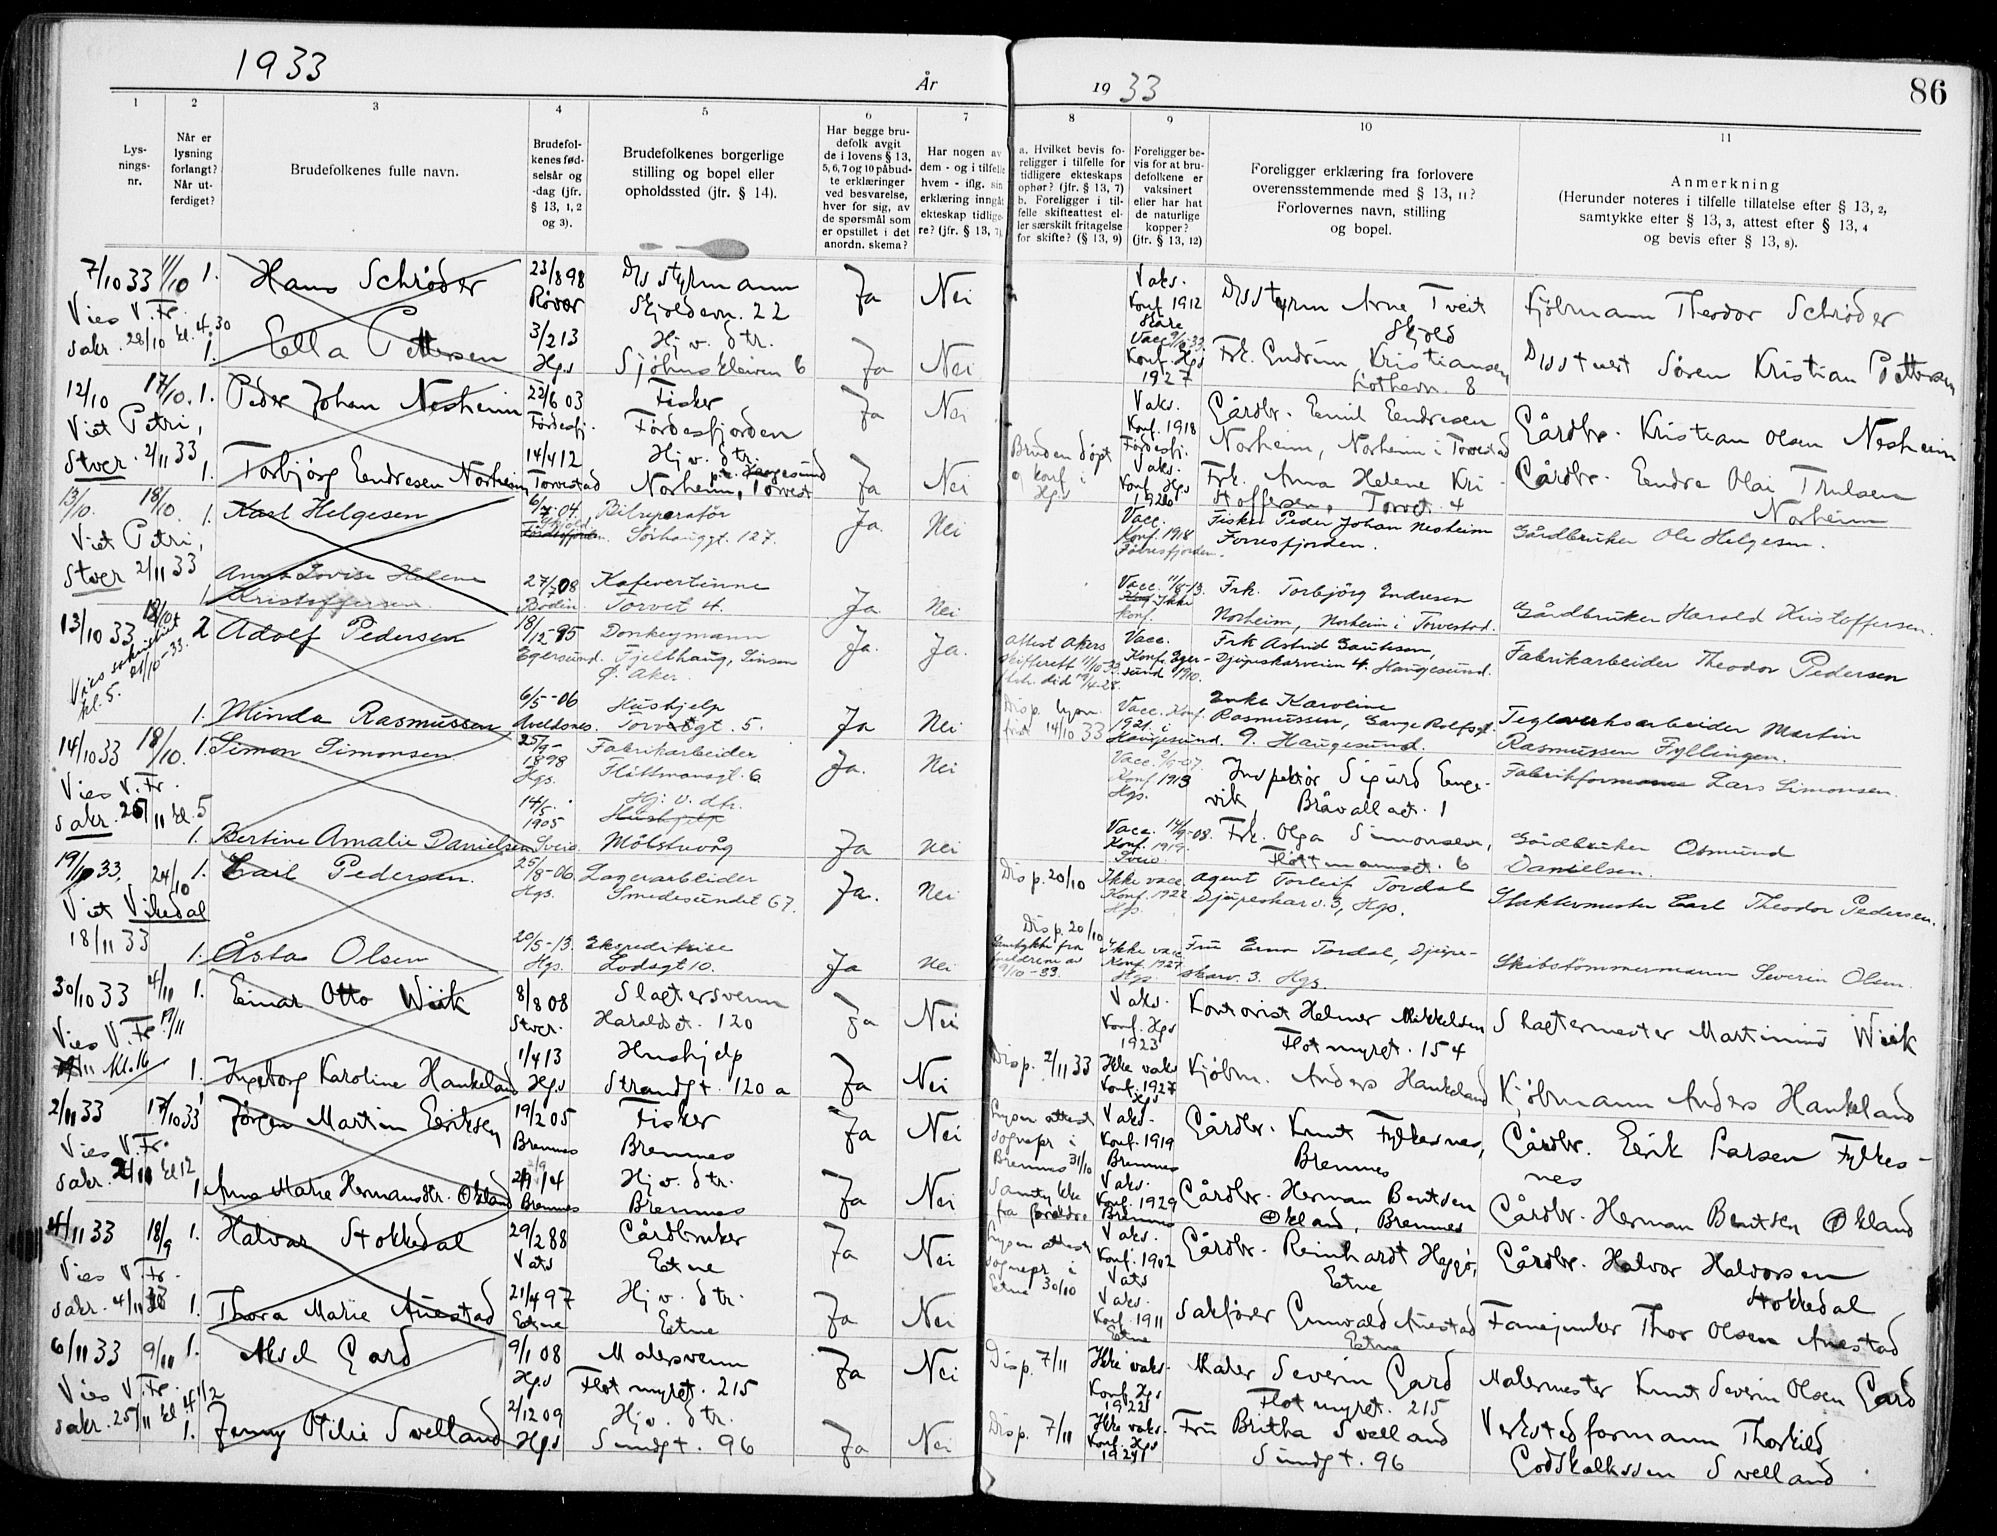 1933
År
1933
86
1 2 3 4 5 6 7 8 9 10 11
Lysningsnr.
Når er lysning forlangt? Når utferdiget?
Brudefolkenes fulle navn.
Brudefolkenes fødselsår og -dag (jfr. § 13, 1, 2 og 3).
Brudefolkenes borgerlige stilling og bopel eller opholdssted (jfr. § 14).
Har begge brudefolk avgit de i lovens § 13, 5, 6, 7 og 10 påbudte erklæringer ved besvarelse, hver for sig, av de spørsmål som er opstillet i det anordn. skema?
Har nogen av dem - og i tilfelle hvem - iflg. sin erklæring inngåt ekteskap tidligere? (jfr. § 13, 7).
a. Hvilket bevis foreligger i tilfelle for tidligere ekteskaps ophør? (jfr. § 13, 7) b. Foreligger i tilfelle skifteattest eller særskilt fritagelse for skifte? (§ 13, 9)
Foreligger bevis for at brudefolkene er vaksinert eller har hat de naturlige kopper? (jfr. § 13, 12)
Foreligger erklæring fra forlovere overensstemmende med § 13, 11? Forlovernes navn, stilling og bopel.
Anmerkning (Herunder noteres i tilfelle tillatelse efter § 13, 2, samtykke efter § 13, 3, attest efter § 13, 4 og bevis efter § 13, 8).
7/10 33 11/10 1. Hans Schrøder 23/8 98 Røvær Dsstyrmann Skjoldavn. 22 Ja Nei Vaks. Konf. 1912 Skåre Dsstyrm Arne Tveit Skjold Kjøbmann Theodor Schrøder
Vies V. Fr. sakr. 28/10 kl. 4.30
1. Ella Pettersen 3/2 13 Hgs Hjv. dtr. Sjøhuskleiven 6 Ja Nei Konf. Hgs 1927 Frk. Gudrun Kristiansen Lothevn. 8 Dsstuert Søren Kristian Pettersen
12/10 17/10. 1. Peder Johan Nesheim 22/6 03 Førdesfj. Fisker Førdesfjorden Ja Nei Vaks. Konf. 1918 Førdesfj. Gårdbr. Emil Eendresen Norheim, Norheim i Torvestad Gårdbr. Kristian Olsen Nesheim
Viet Petri, Stver 2/11 33
1. Torbjørg Eendresen Norheim 14/4 12 Torvestad Hjv. dtr. Norheim, Torvest pr. Haugesund Ja Nei Bruden døpt og konf i Hgs Vaks. Konf. Hgs 1926 Frk. Anna Helene Kristoffersen, Torvet 4 Gårdbr. Eendre Olai Trulsen Norheim
13/10. 18/10. 1. Karl Helgesen Bilreparatør Sørhauggt. 127. Ja. Nei Vacc. Konf. 1918 Fisker Peder Johan Nesheim Forresfjorden. Gårdbruker Ole Helgesen.
Viet Petri, Stver 2/11 33
1 Anna Lovise Helene Kristoffersen. 27/7-08 Bodin Kafevertinne Torvet 4. Ja Nei Vacc. 11/8-13. Ikke konf. Frk. Torbjörg Endresen Norheim, Norheim i Torvestad. Gårdbruker Harald Kristoffersen.
13/10 33 2 Adolf Pedersen 18/12-95 Egersund. Donkeymann Fjellhaug, Linsen Ø. Aker. Ja. Ja. Attest Akers skifterett Vacc. Konf. Egersund 1910. Frk Astrid Gautesen, Djupeskarveien 4. Haugesund. Fabrikarbeider Theodor Pedersen
Vies sakristiet kl. 5. 21/10-33.
1. Minda Rasmussen 6/5-06 Avaldsnes. Hushjelp Torvetgt. 5. Ja Nei Disp. lysn. frist 14/10 33 Vacc. Konf. 1921. i Haugesund. Enke Karoline Rasmussen, Gange Rolfsgt. 9. Haugesund. Teglverksarbeider Martin Rasmussen Fyllingen.
14/10 33 18/10. 1. Simon Simonsen 25/9-1898 Hgs. Fabrikarbeider Flåttmansgt. 6 Ja. Nei Konf. 1913 Hgs. Inspektør Sigurd Engevik, Bråvallagt. 1 Fabrikformann Lars Simonsen.
Vies V. Fr. sakr. 25/11 kl. 5
1. Bertine Amalie Danielsen 14/5. 1905 Sveio. Hj. v. dtr. Hushjelp Møkstuvåg Ja Nei Vacc. 14/9-08. Konf. 1919. Sveio. Frk. Olga Simonsen, Flåttmannsgt. 6 Gårdbruker Osmund Danielsen.
19/10 33. 24/10 1. Carl Pedersen. 25/8-06. Hgs. Lagerarbeider Smedesundet 67. Ja. Nei Disp. 20/10 Ikke vacc. Konf. 1922 Hgs. Agent Torleif Tordal Djupeskarv. 3, Hgs. Slaktermester Carl Theodor Pedersen.
Viet Vikedal 18/11 33
1. Åsta Olsen 20/5-13. Hgs. Ekspeditrise Lodsgt 10. Ja Nei Disp. 20/10 Samtykke fra foreldrene av 19/10-33. Ikke vacc. Konf. 1927 Hgs. Fru Erna Tordal, Djupeskarv. 3. Hgs. Skibstømmermann Severin Olsen.
30/10 33 4/11 1. Einar Otto Wiik 8/8 08 Stver. Slagtersvenn Haraldsgt. 120 Ja Nei Vaks. Konf. Hgs 1923 Kontorist Helmer Mikkelsen Flotmyrgt. 154 Slagtermester Martinius Wiik
Vies V. Fr. kl. 16
1. Ingeborg Karoline Haukeland 1/4 13 Hgs Hushjelp Strandgt. 120 a Ja Nei Disp. 2/11 33 Ikke vaks Konf. 1927 Hgs Kjøbm. Anders Haukeland Kjøbmann Anders Haukeland
2/11 33 17/10 33 1 Jørgen Martin Eeriksen 19/2 05 Bremnes Fisker Bremnes Ja Nei Lysn. attest sognepr i Bremnes 31/10 Vaks. Konf. 1919 Bremnes Gårdbr. Knut Fylkesnes, Bremnes Gårdbr. Eerik Larsen Fylkesnes
Vies V. Fr. sakr. 2/11 kl 12
1 Anna Marie Hermansdtr. Økland Bremnes Hjv. dtr. Bremnes Ja Nei Samtykke fra foreldre. Vaks. Konf. 1929 Bremnes Gårdbr. Herman Bentsen Økland, Bremnes Gårdbr. Herman Bentsen Økland
4/11 33 18/9 1. Halvar Stokkedal 29/2 88 Vats Gårdbruker Etne Ja Nei Lysn attest sognepr i Etne 30/10 Vaks. Konf. 1902 Vats Gårdbr. Reinhardt Heggø, Etne Gårdbr. Halvor Halvorsen Stokkedal
Vies V. Fr. sakr. 4/11 33
1. Thora Marie Auestad 21/4 97 Etne Hjv. dtr. Etne Ja Nei Vaks. Konf. 1911 Etne Sakfører Gunvald Auestad Etne Fanejunker Thor Olsen Auestad
6/11 33 9/11 1. Aksel Gard 9/1 08 Hgs Malersvenn Flotmyrgt. 215 Ja Nei Disp. 7/11 Ikke vaks. Konf. Hgs 1922 Maler Severin Gard Flotmyrgt. 215 Malermester Knut Severin Olsen Gard
Vies V. Fr. sakr. 25/11 kl 4 1/2
1. Jenny Otilie Svelland 2/12 09 Hgs Hjv. dtr. Sundgt. 96 Ja Nei Disp. 7/11 Ikke vaks. Konf. Hgs 1924 Fru Britha Svelland Sundgt. 96 Verkstedformann Thorkild Godskalkssen Svelland